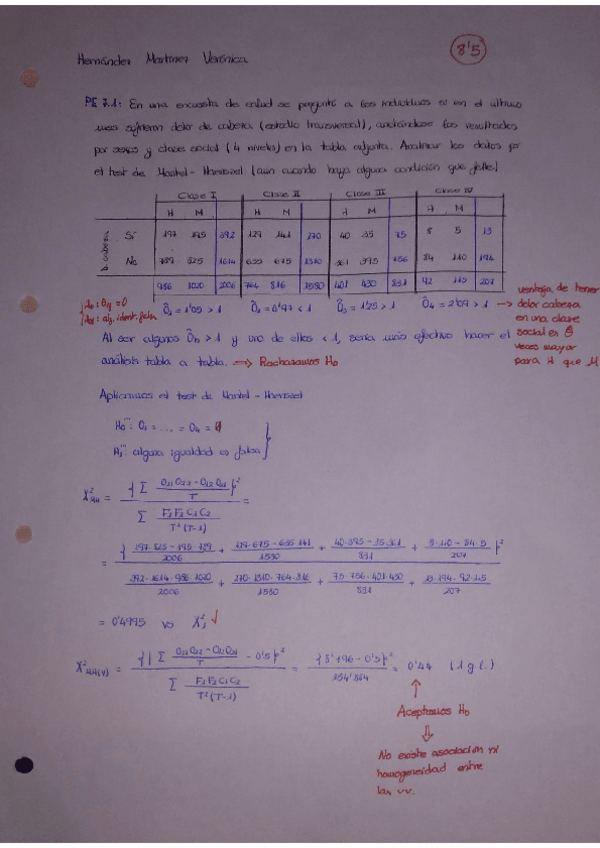 Hernández Martínez Verónica
8'5
PE 7.1: En una encuesta de salud se preguntó a los individuos si en el último
mes sufrieron dolor de cabeza (estudio transversal), anotándose los resultados
por sexos y clase social (4 niveles) en la tabla adjunta. Analizar los datos por
el test de Mantel-Haenszel (aun cuando haya alguna condición que falle)
Clase I Clase II Clase III Clase IV
H M H M H M H M
D. cabeza
Sí 197 195 392 129 141 270 40 35 75 8 5 13
No 789 825 1614 635 675 1310 361 395 756 84 110 194
986 1020 2006 764 816 1580 401 430 831 92 115 207
Ô₁ = 1'05 > 1 Ô₂ = 0'97 < 1 Ô₃ = 1'25 > 1 Ô₄ = 2'09 > 1 → ventaja de tener
dolor cabeza
en una clase
social es Ô
veces mayor
para H que M
Al ser algunos Ôₕ > 1 y uno de ellos < 1, sería más efectivo hacer el
análisis tabla a tabla. → Rechazamos H₀
Aplicamos el test de Mantel-Haenszel
H₀''': O₁ = ... = O₄ =
H₁''': alguna igualdad es falsa
X²MH = {Σ (O₁₁O₂₂ - O₁₂O₂₁)/T}² / Σ F₁F₂C₁C₂/T²(T-1) =
= {(197·825 - 195·789)/2006 + (129·675 - 635·141)/1580 + (40·395 - 35·361)/831 + (8·110 - 84·5)/207}²
392·1614·986·1020/2006 + 270·1310·764·816/1580 + 75·756·401·430/831 + 13·194·92·115/207
= 0'4995 vs X²₁ √
X²MH(Y) = {|Σ (O₁₁O₂₂ - O₁₂O₂₁)/T| - 0'5}² / Σ F₁F₂C₁C₂/T²(T-1) = {8'196 - 0'5}² / 134'814 = 0'44 (1 g.l.)
Aceptamos H₀
No existe asociación ni
homogeneidad entre
las vv.